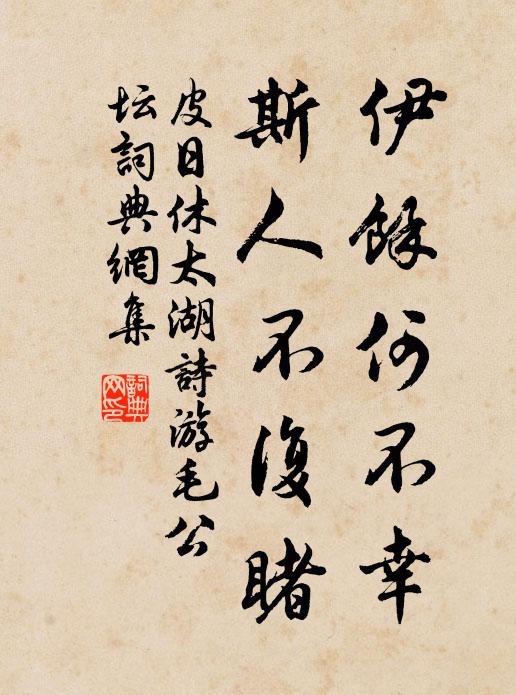 伊餘何不幸
斯人不復睹
皮日休太湖詩游毛公
坛詞典網集
詞典网印